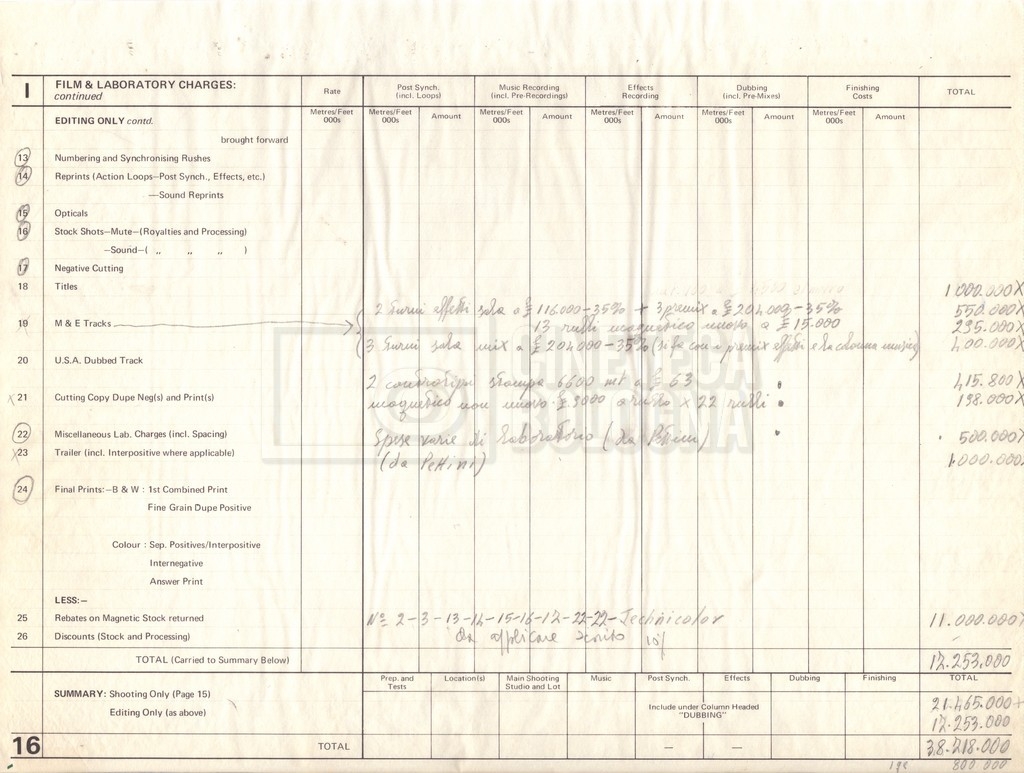 I FILM & LABORATORY CHARGES:
continued
Rate
Post Synch.
(incl. Loops)
Music Recording
(incl. Pre-Recordings)
Effects
Recording
Dubbing
(incl. Pre-Mixes)
Finishing
Costs
TOTAL
EDITING ONLY contd.
Metres/Feet 000s Metres/Feet 000s Amount Metres/Feet 000s Amount Metres/Feet 000s Amount Metres/Feet 000s Amount Metres/Feet 000s Amount
brought forward
13 Numbering and Synchronising Rushes
14 Reprints (Action Loops—Post Synch., Effects, etc.)
—Sound Reprints
15 Opticals
16 Stock Shots—Mute—(Royalties and Processing)
—Sound—( „ „ „ )
17 Negative Cutting
18 Titles 1.000.000 X
2 turni effetti sala a £ 116.000-35% + 3 premix a £ 204.000-35% 550.000 X
19 M & E Tracks 13 rulli magnetico nuovo a £ 15.000 295.000 X
3 turni sala mix a £ 204.000-35% (si fa con premix effetti e la colonna 400.000 X
20 U.S.A. Dubbed Track
2 stampa 6600 mt a £ 63 415.800 X
X 21 Cutting Copy Dupe Neg(s) and Print(s) magnetico non nuovo £ 3000 a rullo x 22 rulli 198.000 X
22 Miscellaneous Lab. Charges (incl. Spacing) Spese varie di laboratorio (da Pettini) 500.000
X 23 Trailer (incl. Interpositive where applicable) (da Pettini) 1.000.000
24 Final Prints:—B & W : 1st Combined Print
Fine Grain Dupe Positive
Colour : Sep. Positives/Interpositive
Internegative
Answer Print
LESS:—
25 Rebates on Magnetic Stock returned Nº 2-3-13-14-15-16-17-22-22- Technicolor 11.000.000
26 Discounts (Stock and Processing) da applicare sconto 10%
TOTAL (Carried to Summary Below) 17.253.000
Prep. and
Tests
Location(s)
Main Shooting
Studio and Lot
Music
Post Synch.
Effects
Dubbing
Finishing
TOTAL
SUMMARY: Shooting Only (Page 15) 21.465.000 +
Include under Column Headed
"DUBBING"
Editing Only (as above) 17.253.000
16 TOTAL — — 38.718.000
800 000
CINETECA
BOLOGNA